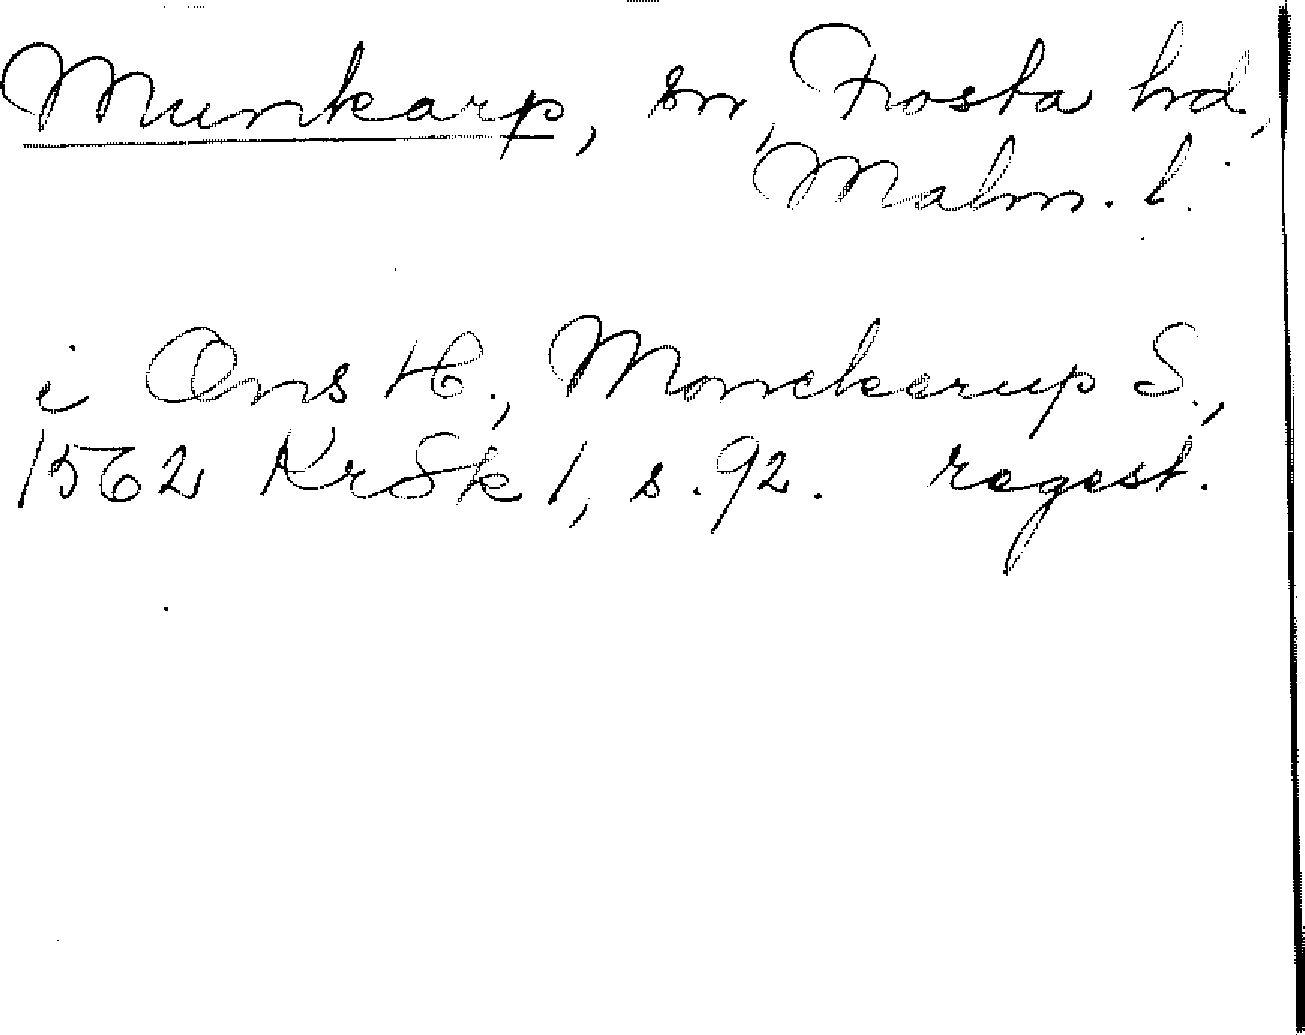 Munkarp, sn, Frosta hd,
Malm. l.
i Ons H., Monckerup S.,
1562 KrSk 1, s. 92. regest.